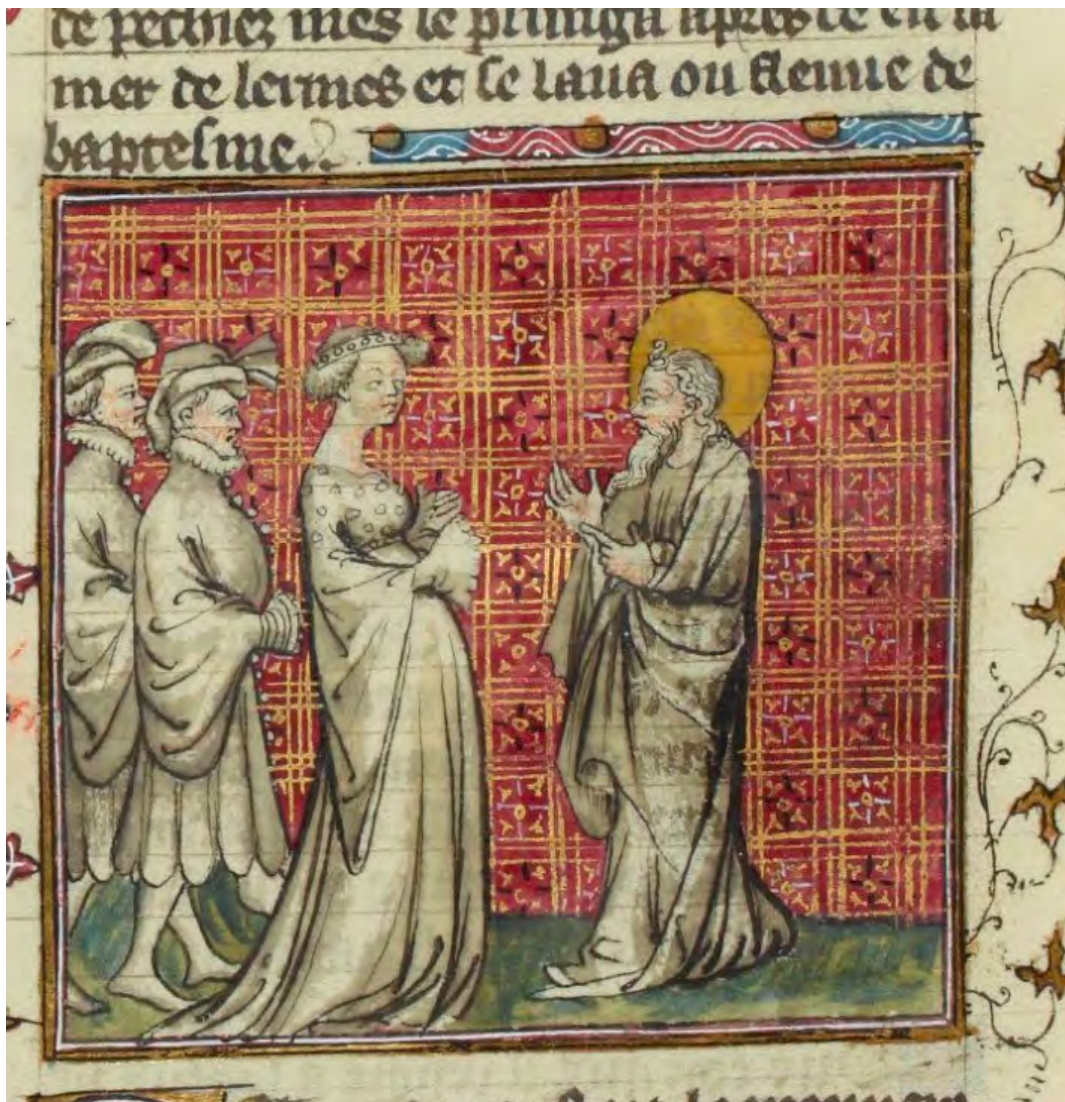 de pechiez mes le plunga apres ce en la
mer de lermes et se laua ou fleuue de
baptesme.